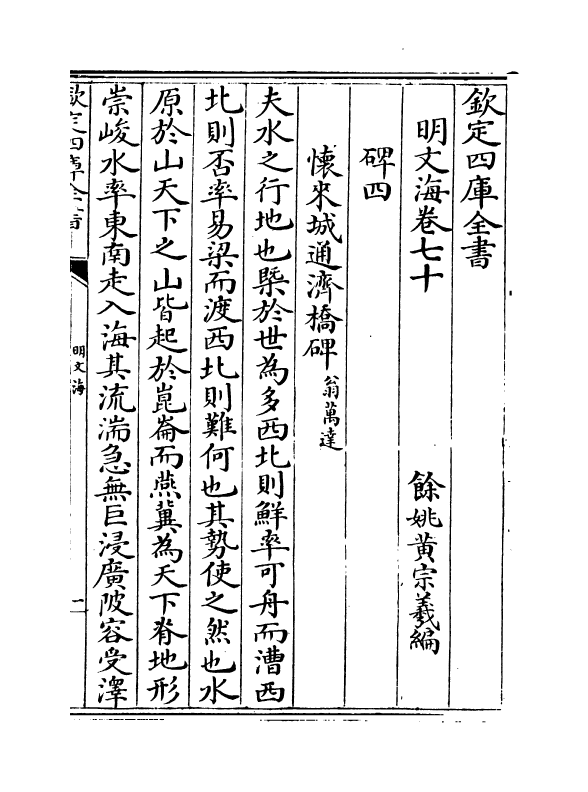 欽定四庫全書
明文海卷七十　餘姚黃宗羲編
碑四
懷來城通濟橋碑 翁萬達
夫水之行地也槩於世為多西北則鮮率可舟而漕西
北則否率易梁而渡西北則難何也其勢使之然也水
原於山天下之山皆起於崑崙而燕冀為天下脊地形
崇峻水率東南走入海其流湍急無巨浸廣陂容受澤
欽定四庫全書
明文海
一